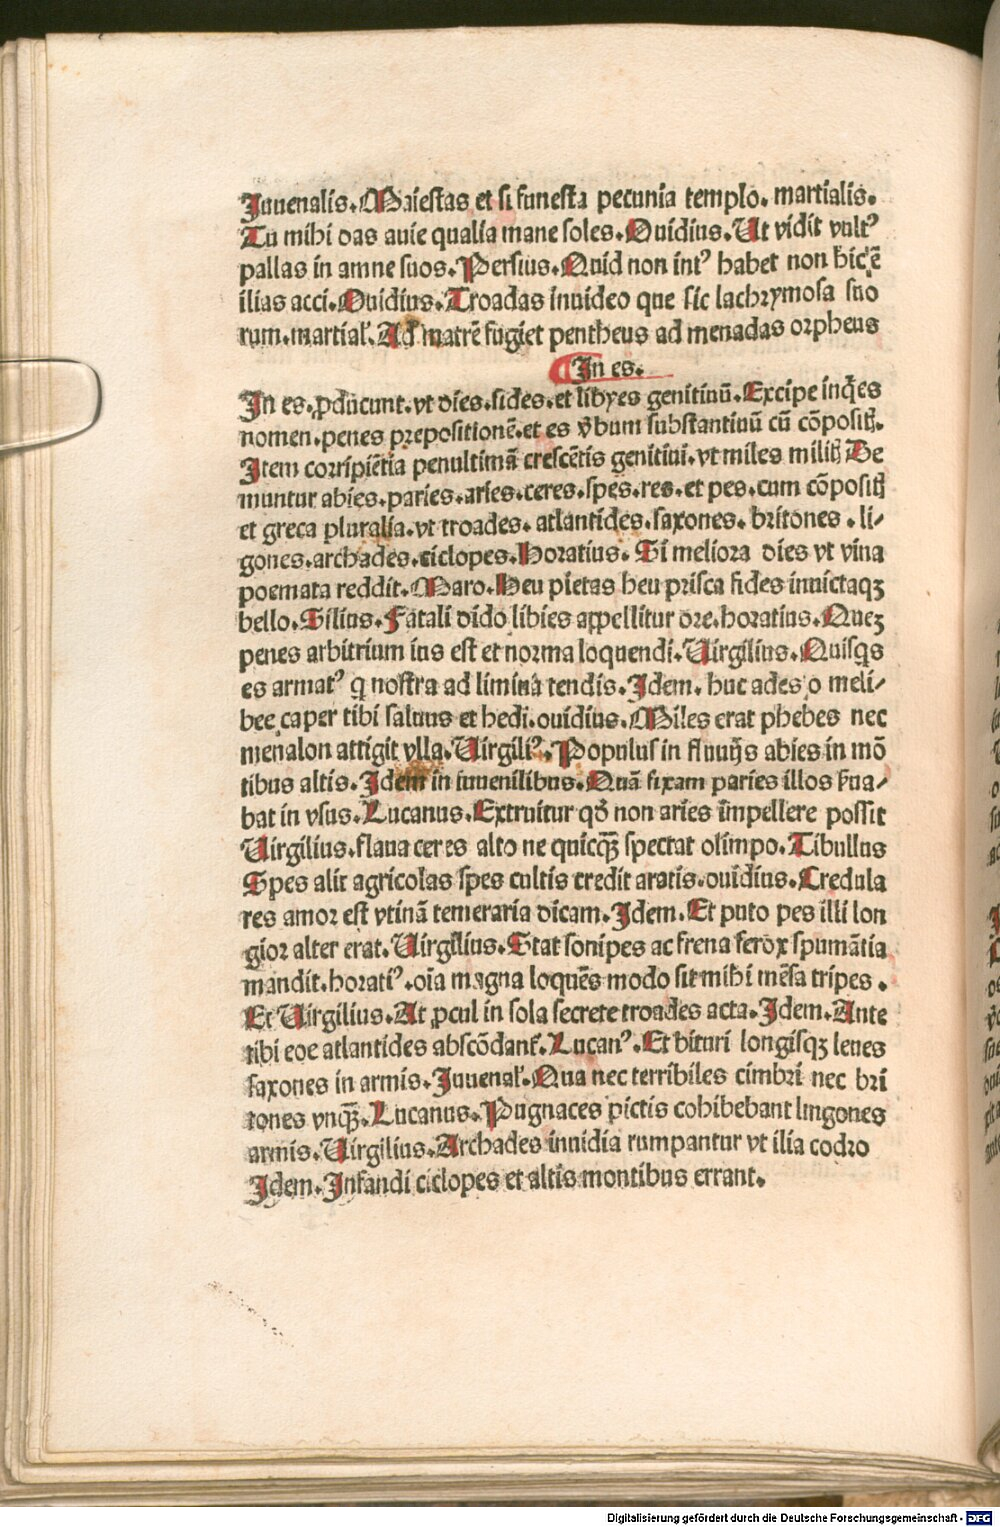 Iuuenalis. Maiestas et si funesta pecunia templo. martialis.
Tu mihi das auie qualia mane soles. Ouidius. Ut vidit vultꝰ
pallas in amne suos. Persius. Quid non intꝰ habet non hic ē
ilias acci. Ouidius. Troadas inuideo que sic lachrymosa suo
rum. martial̕. Ad matrē fugiet pentheus ad menadas orpheus
In es.
In es. ꝓducunt. vt dies. sides. et libyes genitiuū. Excipe inq̄es
nomen. penes prepositionē. et es v̄bum substantiuū cū cōpositꝭ.
Item corripiētia penultimā crescētis genitiui. vt miles militꝭ De
muntur abies. paries. aries. ceres. spes. res. et pes. cum cōpositꝭ
et greca pluralia. vt troades. atlantides. saxones. britones . li/
gones. archades. ciclopes. Horatius. Si meliora dies vt vina
poemata reddit. Maro. Heu pietas heu prisca fides inuictaqꝫ
bello. Silius. Fatali dido libies appellitur ore. horatius. Queꝫ
penes arbitrium ius est et norma loquendi. Uirgilius. Quisqs
es armatꝰ q nostra ad limina tendis. Idem. huc ades o meli/
bee caper tibi saluus et hedi. ouidius. Miles erat phebes nec
menalon attigit vlla. Uirgiliꝰ. Populus in fluuijs abies in mō
tibus altis. Idem in iuuenilibus. Quā fixam paries illos s̄ua/
bat in vsus. Lucanus. Extruitur qd̄ non aries impellere possit
Uirgilius. flaua ceres alto ne quicq̄ꝫ spectat olimpo. Tibullus
Spes alit agricolas spes cultis credit aratis. ouidius. Credula
res amor est vtinā temeraria dicam. Idem. Et puto pes illi lon
gior alter erat. Uirgilius. Stat sonipes ac frena ferox spumātia
mandit. horatiꝰ. oīa magna loquēs modo sit mihi mēsa tripes .
Et Uirgilius. At ꝓcul in sola secrete troades acta. Idem. Ante
tibi eoe atlantides abscōdant̄. Lucanꝰ. Et bituri longisqꝫ leues
saxones in armis. Iuuenal̕. Qua nec terribiles cimbri nec bri
tones vnq̄ꝫ. Lucanus. Pugnaces pictis cohibebant lingones
armis. Uirgilius. Archades inuidia rumpantur vt ilia codro
Idem. Infandi ciclopes et altis montibus errant.
Digitalisierung gefördert durch die Deutsche Forschungsgemeinschaft - DFG